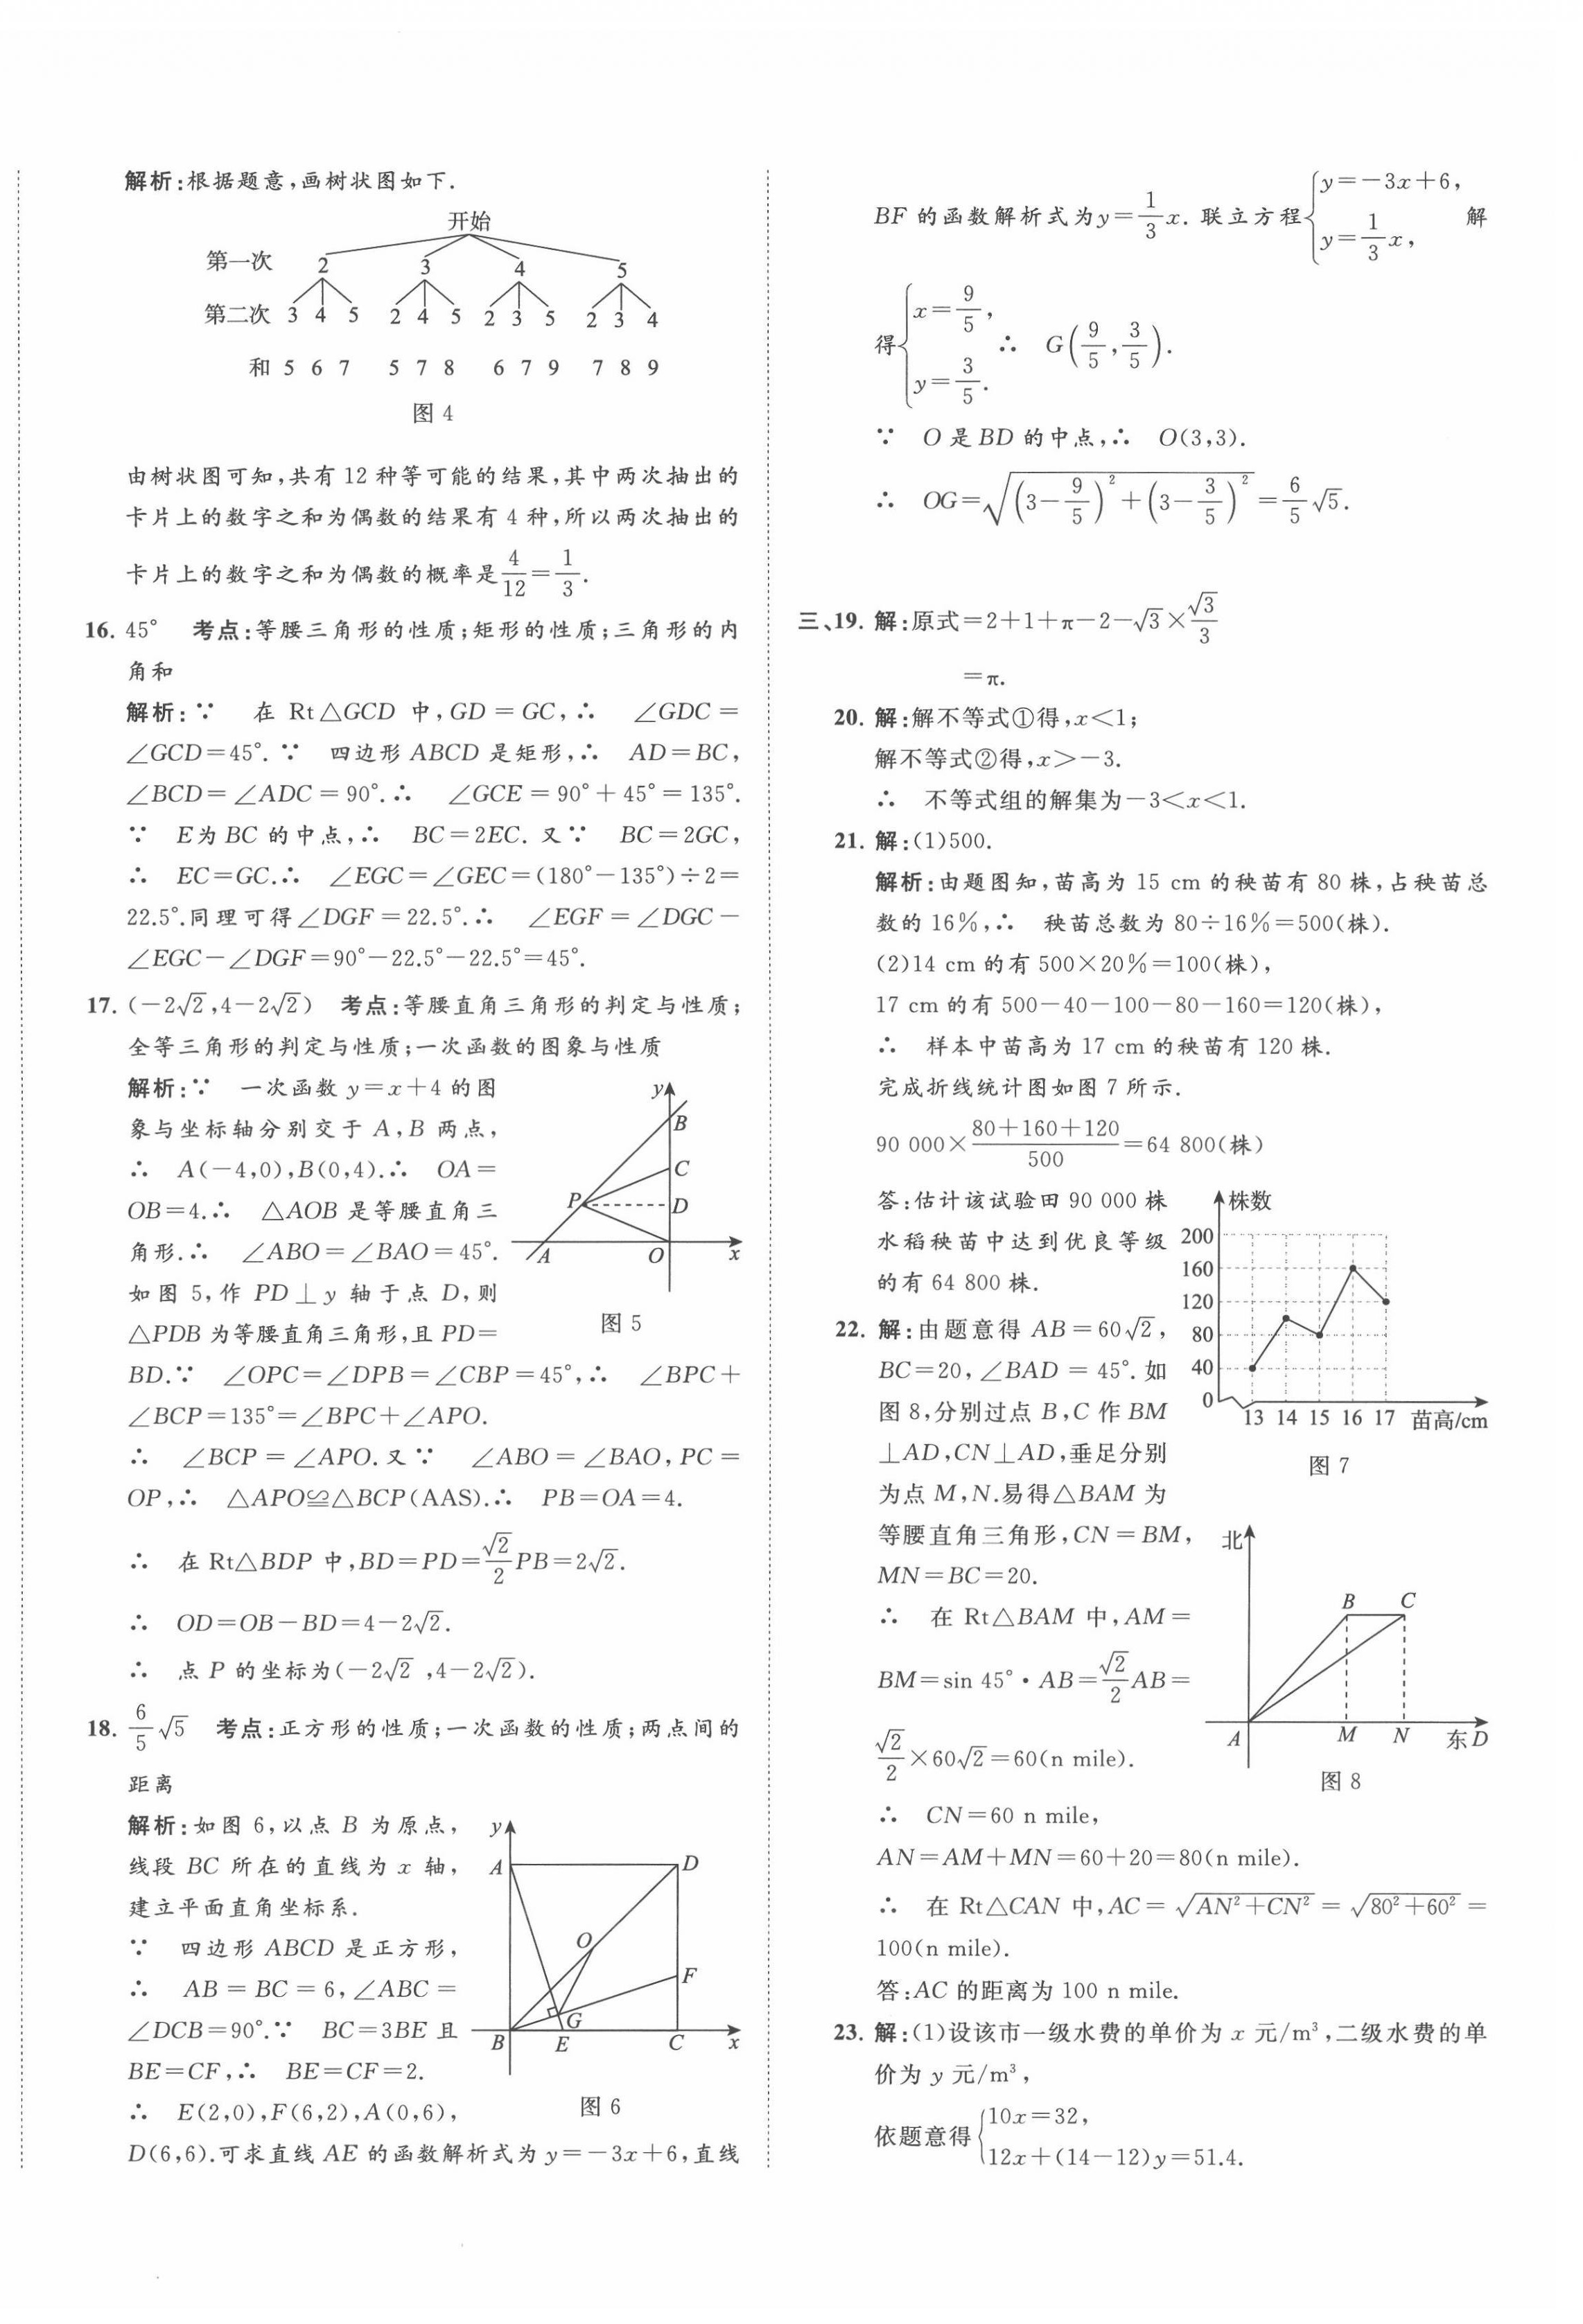 解析:根据题意,画树状图如下.
开始
第一次 2 3 4 5
第二次 3 4 5 2 4 5 2 3 5 2 3 4
和 5 6 7 5 7 8 6 7 9 7 8 9
图 4
由树状图可知,共有 12 种等可能的结果,其中两次抽出的
卡片上的数字之和为偶数的结果有 4 种,所以两次抽出的
卡片上的数字之和为偶数的概率是4/12=1/3.
16. 45° 考点:等腰三角形的性质;矩形的性质;三角形的内
角和
解析:∵ 在 Rt△GCD 中,GD=GC,∴ ∠GDC=
∠GCD=45°.∵ 四边形 ABCD 是矩形,∴ AD=BC,
∠BCD=∠ADC=90°.∴ ∠GCE=90°+45°=135°.
∵ E为 BC 的中点,∴ BC=2EC. 又∵ BC=2GC,
∴ EC=GC.∴ ∠EGC=∠GEC=(180°-135°)÷2=
22.5°.同理可得∠DGF=22.5°.∴ ∠EGF=∠DGC-
∠EGC-∠DGF=90°-22.5°-22.5°=45°.
17. (-2√2,4-2√2) 考点:等腰直角三角形的判定与性质;
全等三角形的判定与性质;一次函数的图象与性质
解析:∵ 一次函数 y=x+4 的图
象与坐标轴分别交于 A,B 两点,
∴ A(-4,0),B(0,4).∴ OA=
OB=4.∴ △AOB 是等腰直角三
角形.∴ ∠ABO=∠BAO=45°.
如图 5,作 PD⊥y 轴于点 D,则
△PDB 为等腰直角三角形,且 PD=
y
B
C
P D
A O x
图 5
BD.∵ ∠OPC=∠DPB=∠CBP=45°,∴ ∠BPC+
∠BCP=135°=∠BPC+∠APO.
∴ ∠BCP=∠APO.又∵ ∠ABO=∠BAO,PC=
OP,∴ △APO≌△BCP(AAS).∴ PB=OA=4.
∴ 在 Rt△BDP 中,BD=PD=√2/2PB=2√2.
∴ OD=OB-BD=4-2√2.
∴ 点 P 的坐标为(-2√2 ,4-2√2).
18. 6/5√5 考点:正方形的性质;一次函数的性质;两点间的
距离
解析:如图 6,以点 B 为原点,
线段 BC 所在的直线为 x 轴,
建立平面直角坐标系.
∵ 四边形 ABCD 是正方形,
∴ AB=BC=6,∠ABC=
∠DCB=90°.∵ BC=3BE 且
BE=CF,∴ BE=CF=2.
∴ E(2,0),F(6,2),A(0,6),
y
A D
O
F
G
B E C x
图 6
D(6,6).可求直线 AE 的函数解析式为 y=-3x+6,直线
BF 的函数解析式为y=1/3x. 联立方程{y=-3x+6, y=1/3x, 解
得{x=9/5, y=3/5. ∴ G(9/5,3/5).
∵ O 是 BD 的中点,∴ O(3,3).
∴ OG=√((3-9/5)²+(3-3/5)²)=6/5√5.
三、19. 解:原式=2+1+π-2-√3×√3/3
=π.
20. 解:解不等式①得,x<1;
解不等式②得,x>-3.
∴ 不等式组的解集为-3<x<1.
21. 解:(1)500.
解析:由题图知,苗高为 15 cm 的秧苗有 80 株,占秧苗总
数的 16%,∴ 秧苗总数为 80÷16%=500(株).
(2)14 cm 的有 500×20%=100(株),
17 cm 的有 500-40-100-80-160=120(株),
∴ 样本中苗高为 17 cm 的秧苗有 120 株.
完成折线统计图如图 7 所示.
90 000×(80+160+120)/500=64 800(株)
答:估计该试验田 90 000 株
水稻秧苗中达到优良等级
的有 64 800 株.
株数
200
160
120
80
40
0
13 14 15 16 17 苗高/cm
图 7
22. 解:由题意得 AB=60√2,
BC=20,∠BAD=45°.如
图 8,分别过点 B,C 作 BM
⊥AD,CN⊥AD,垂足分别
为点 M,N.易得△BAM 为
等腰直角三角形,CN=BM,
MN=BC=20.
∴ 在 Rt△BAM 中,AM=
BM=sin 45°·AB=√2/2AB=
√2/2×60√2=60(n mile).
北
B C
A M N 东D
图 8
∴ CN=60 n mile,
AN=AM+MN=60+20=80(n mile).
∴ 在 Rt△CAN 中,AC=√(AN²+CN²)=√(80²+60²)=
100(n mile).
答:AC 的距离为 100 n mile.
23. 解:(1)设该市一级水费的单价为 x 元/m³,二级水费的单
价为 y 元/m³,
依题意得{10x=32, 12x+(14-12)y=51.4.